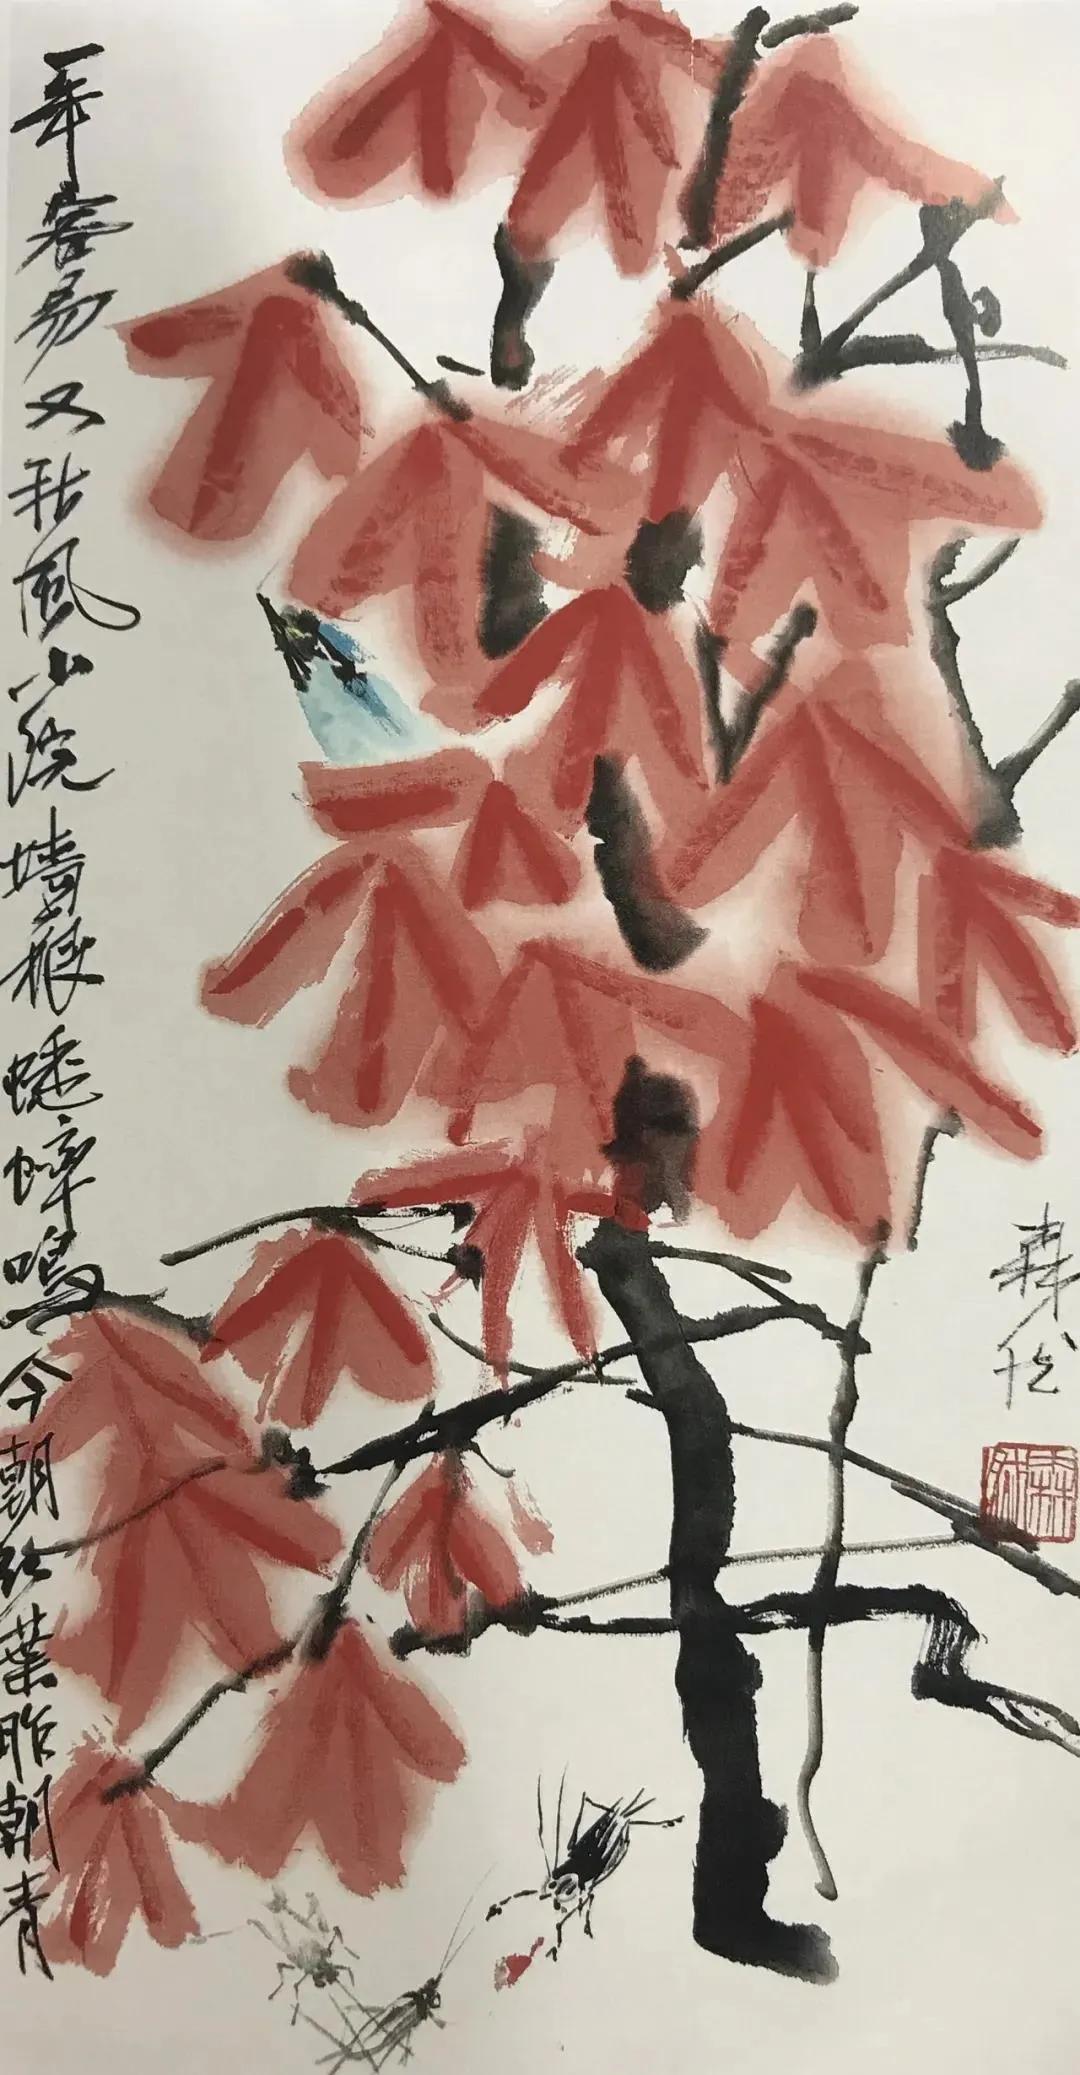 一年容易又秋风小院墙根蟋蟀鸣今朝红叶昨朝青